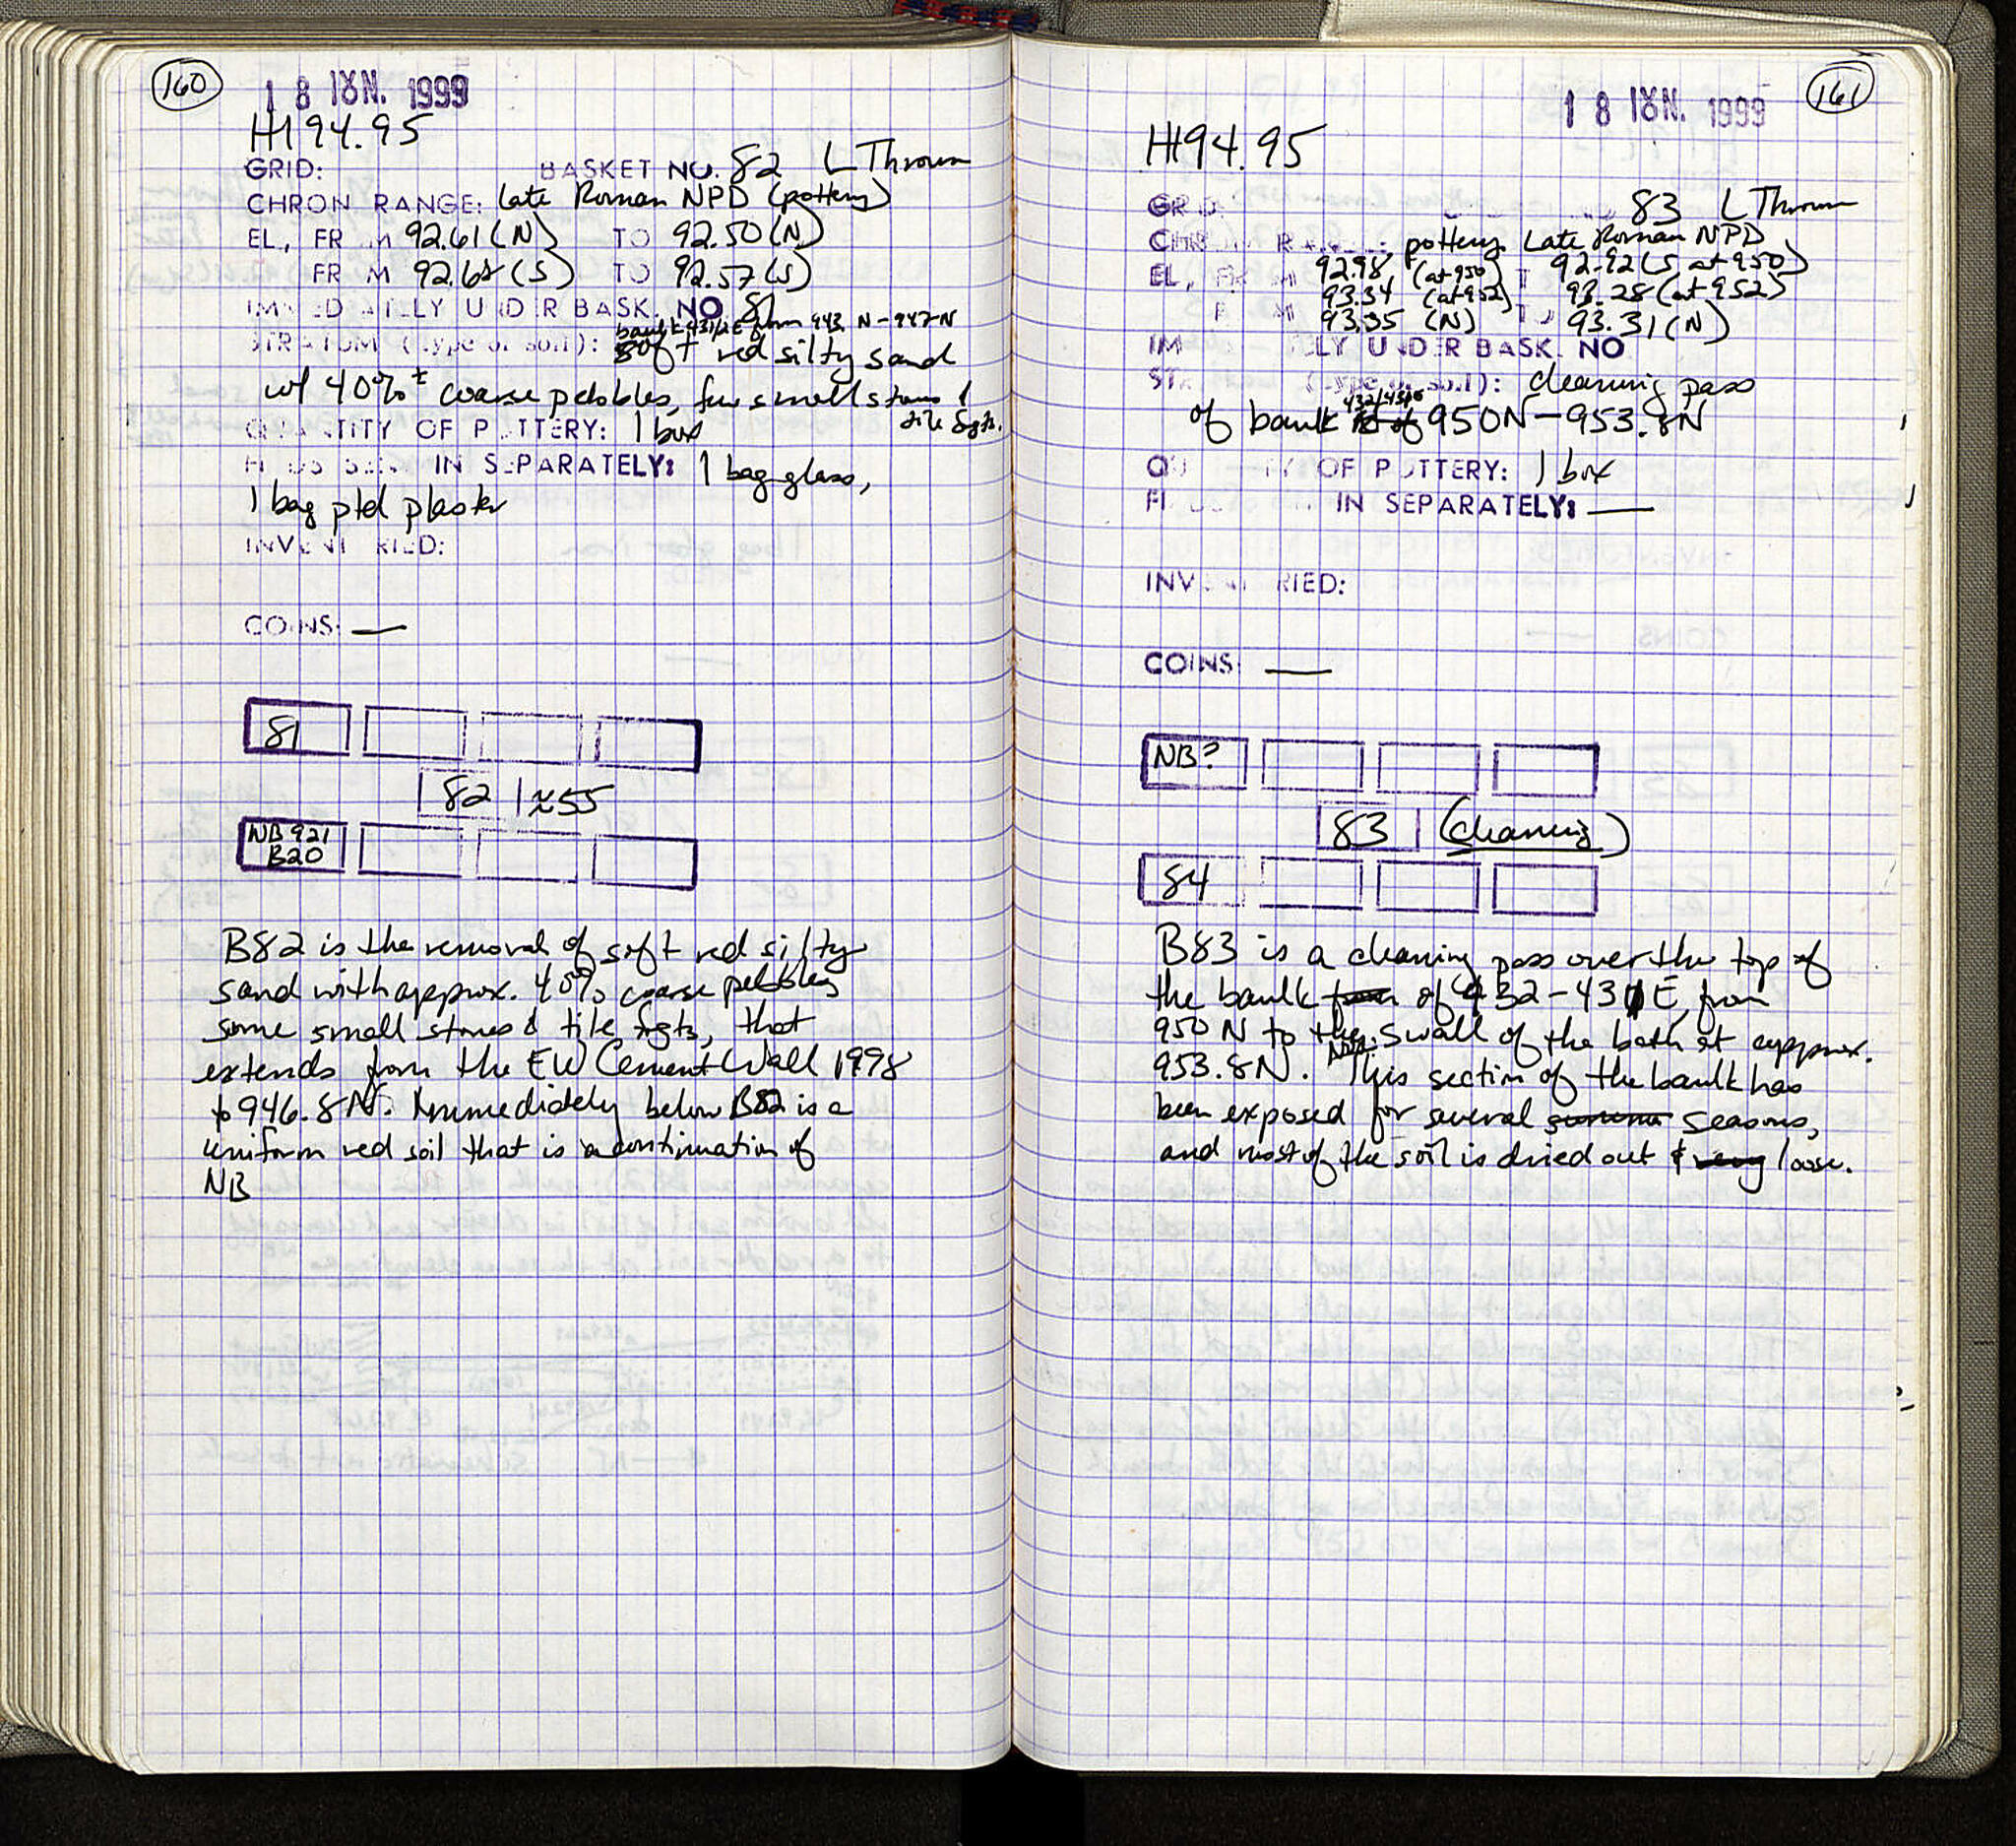 160
18 ΙΟΥΝ. 1999
HH94.95
GRID: BASKET NO. 82 L Thrown
CHRON RANGE: Late Roman NPD (pottery)
EL., FR M 92.61 (N) TO 92.50 (N)
FR M 92.68 (S) TO 92.57 (S)
IMMEDIATELY UNDER BASK. NO 81
baulk 431/2E from 943 N - 947 N
STRATUM (type of soil): soft red silty sand
w/ 40% ± coarse pebbles, few small stones &
tile fgts.
QUANTITY OF POTTERY: 1 box
FINDS SENT IN SEPARATELY: 1 bag glass,
1 bag ptd plaster
INVENT RIED:
COINS: —
81
82 ≈55
NB 921
B20
B82 is the removal of soft red silty
sand with approx. 40% coarse pebbles
some small stones & tile fgts, that
extends from the EW Cement Wall 1998
to 946.8N. Immediately below B82 is a
uniform red soil that is a continuation of
NB
161
18 ΙΟΥΝ. 1999
HH94.95
GR D 83 L Thrown
CHR N RANGE: pottery Late Roman NPD
EL., FR M 92.98 (at 950) T 92.92 (S at 950)
93.34 (at 952) 93.28 (at 952)
F M 93.35 (N) TO 93.31 (N)
IM LY UNDER BASK. NO
ST (type of soil): cleaning pass
432/431E
of baulk 950N – 953.8N
QU TY OF POTTERY: 1 box
FI IN SEPARATELY: —
INVENT RIED:
COINS: —
NB?
83 (cleaning)
84
B83 is a cleaning pass over the top of
the baulk from of 432-431E from
950 N to the S wall of the bath at approx.
953.8N. This section of the baulk has
been exposed for several seasons,
and most of the soil is dried out & very loose.